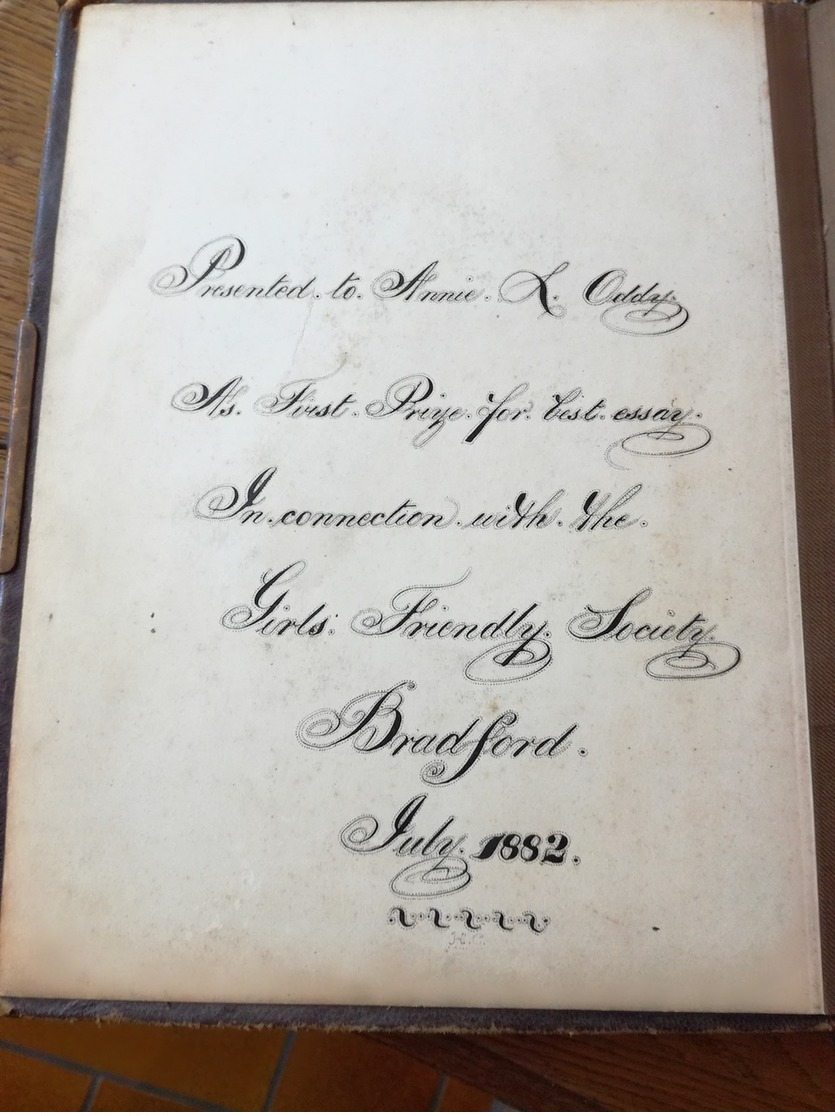 Presented. to. Annie. L. Oddy.
As. First. Prize. for. best. essay.
In. connection. with. the.
Girls. Friendly. Society.
Bradford.
July. 1882.